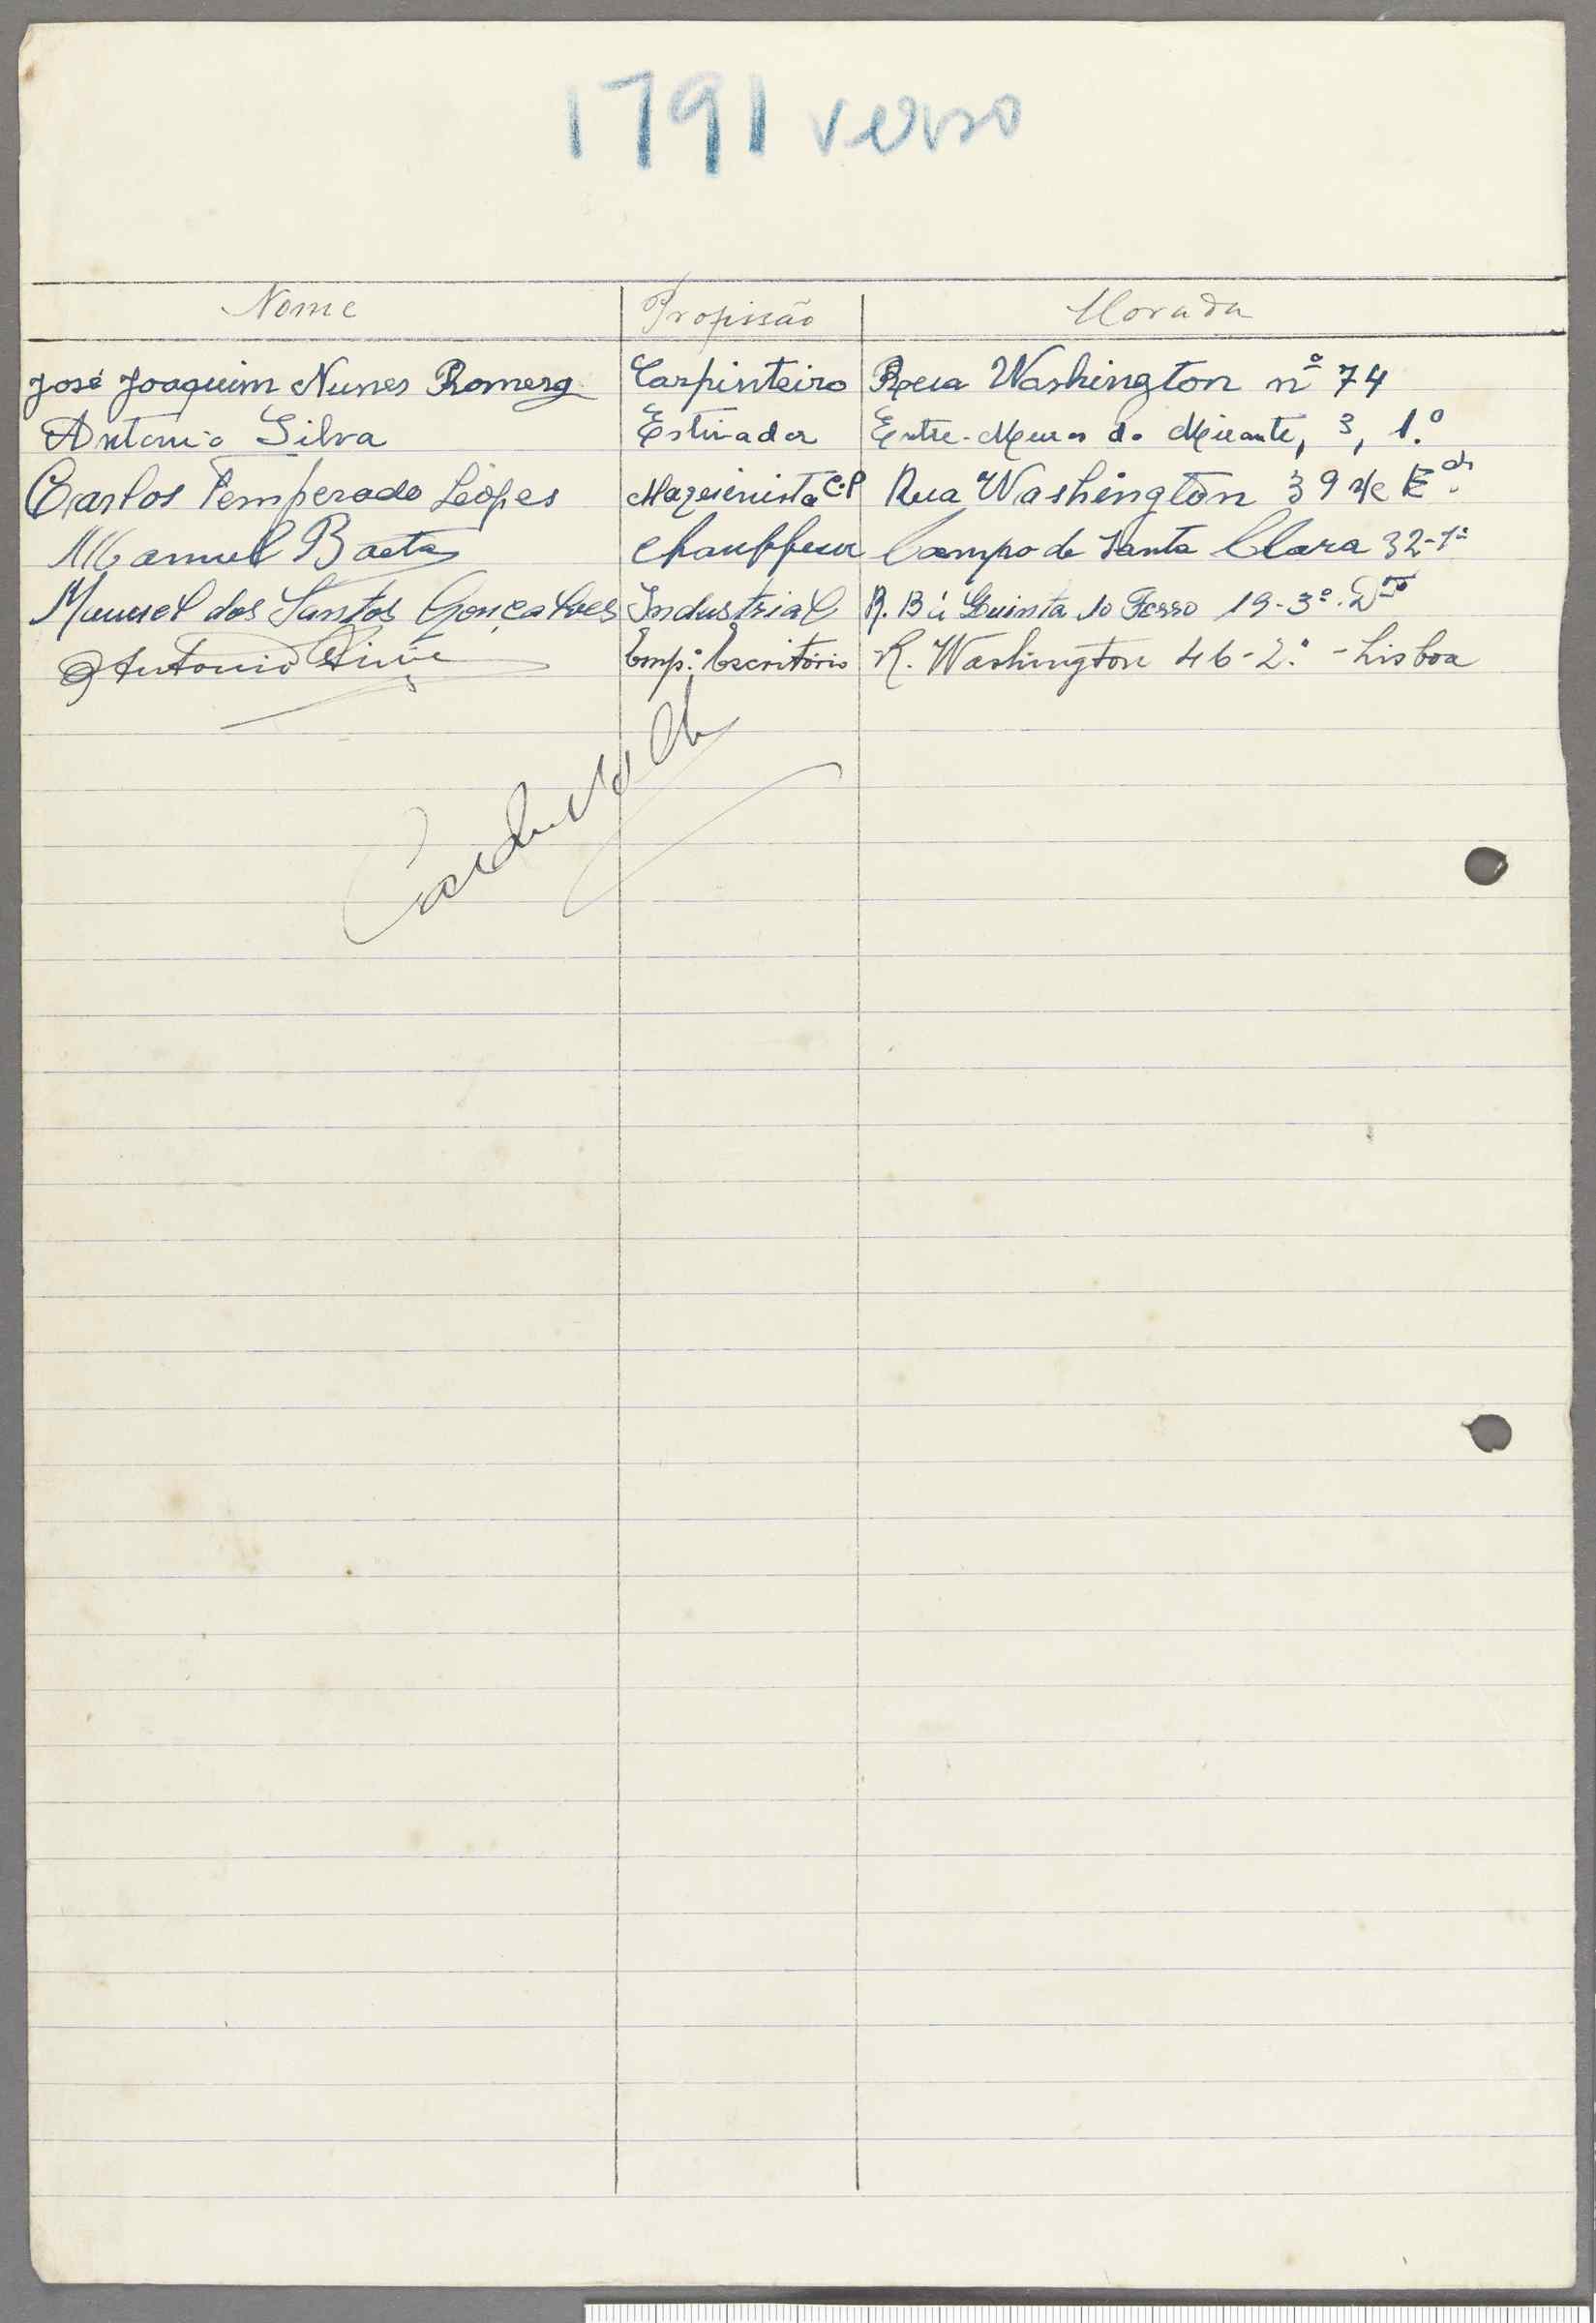 1791 verso
Nome Profissão Morada
José Joaquim Nunes Romero Carpinteiro Rua Washington nº 74
Antonio Silva Estivador Entre-Muros do Mirante, 3, 1.º
Carlos Temperado Lopes Maquinista C.P Rua Washington 39 r/c E
Manuel Baeta Chauffeur Campo de Santa Clara 32-1º
Manuel dos Santos Gonçalves Industrial R. B à Quinta do Ferro 19-3º. Dto
Antonio Emp.º Escritório R. Washington 46-2.º - Lisboa